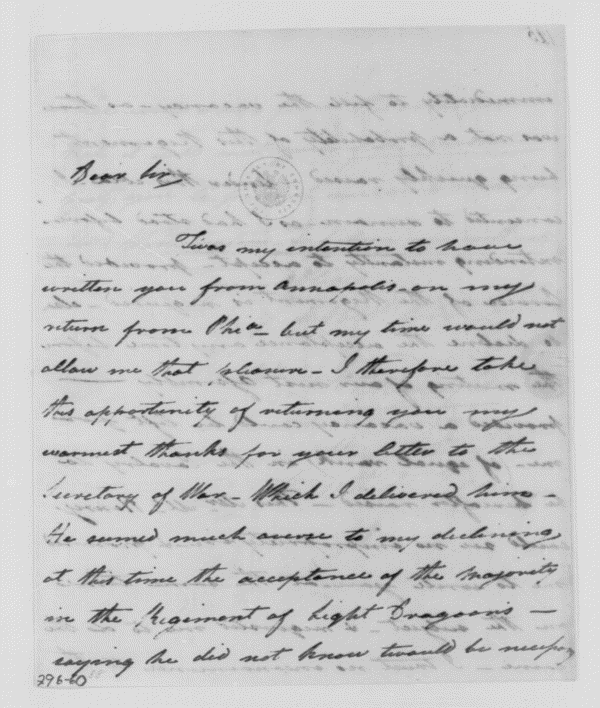 Dear Sir
Twas my intention to have
written you from Annapolis - on my
return from Phia - but my time would not
allow me that pleasure - I therefore take
this opportunity of returning you my
warmest thanks for your letter to the
Secretary of War - Which I delivered him -
He seemed much averse to my declining
at this time the acceptance of the Majority
in the Regiment of Light Dragoons -
saying he did not know twould be necessary
296-60